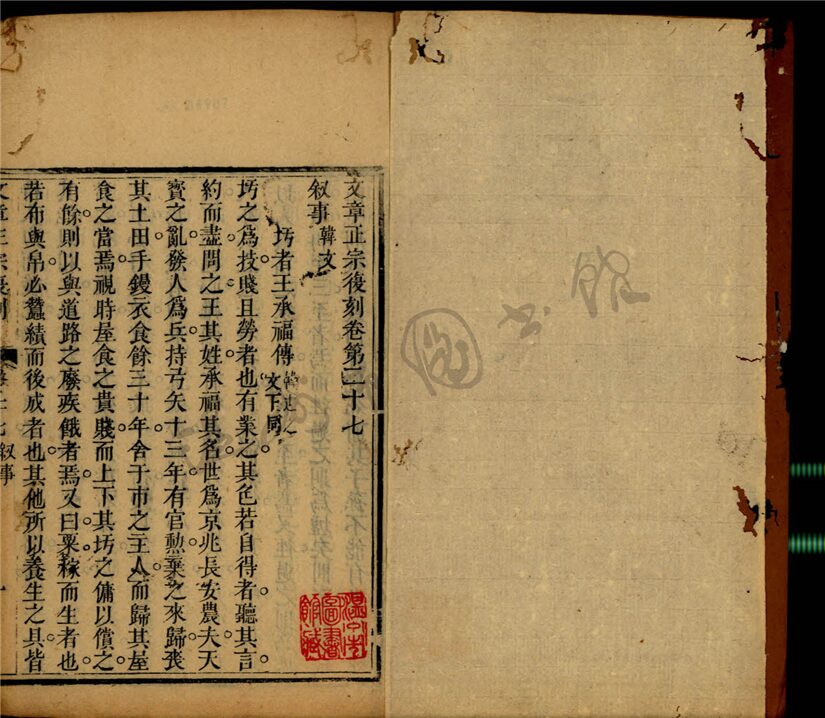 图书馆
文章正宗復刻卷第二十七
叙事 韓文
圬者王承福傳 韓退之文下同
圬之爲技賤且勞者也。有業之。其色若自得者。聽其言。
約而盡。問之。王其姓。承福其名。世爲京兆長安農夫。天
寳之亂。發人爲兵。持弓矢十三年。有官勲。棄之來歸。喪
其土田。手鏝衣食。餘三十年。舍于市之主人。而歸其屋
食之當焉。視時屋食之貴賤。而上下其圬之傭以償之。
有餘則以與道路之廢疾餓者焉。又曰。粟稼而生者也。
若布與帛。必蠶績而後成者也。其他所以養生之具。皆
文章正宗復刻 叙事 一
溫州市
圖書
館藏